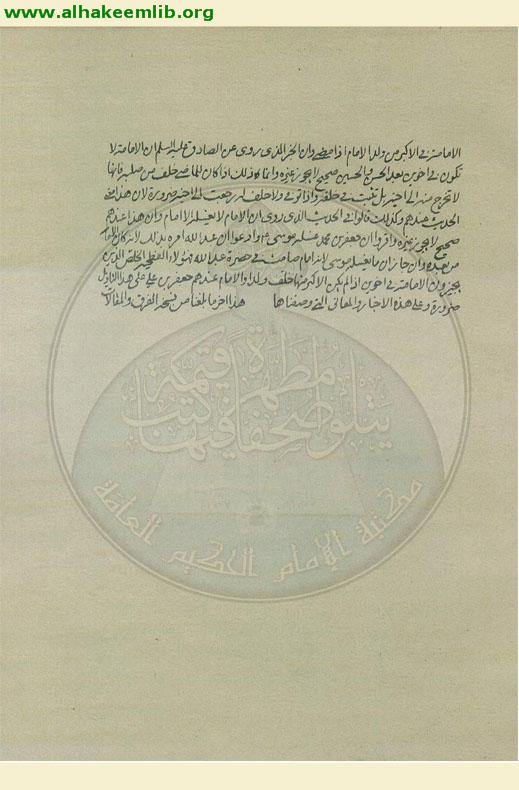 www.alhakeemlib.org
الامامة في الاكبر من ولد الامام اذا مضى وان الخبر الذي روى عن الصادق عليه السلم ان الامامة لا
تكون في اخوين بعد الحسن والحسين صحيح لا يجوز غيره وانما كان ذلك اذا كان للماضي خلف من صلبه فانها
لا تخرج منه الى اخيه بل تثبت في خلفه واذا توفي ولا خلف له رجعت الى اخيه ضرورة لان هذا معنى
الحديث عندهم وكذلك قالوا في الحديث الذي روى ان الامام لا يغسله الا امام وان هذا عندهم
صحيح لا يجوز غيره واقروا ان جعفر بن محمد غسله موسى وادعوا ان عبد الله امره بذلك لانه كان الامام
من بعده وان جاز ان ما يغسله موسى لانه امام صامت في حضرة عبد الله فهؤلاء الفطحية الخلص الذين
يجيزون الامامة في اخوين اذا لم يكن الاكبر منهما خلف ولدا والامام عندهم جعفر بن علي على هذا التاويل
ضرورة وعلى هذه الاخبار والمعاني التي وصفناها هذا اخر ما بلغنا من نسخة الفرق والمقالات
يتلو صحفا مطهرة فيها كتب قيمة
مكتبة الإمام الحكيم العامة